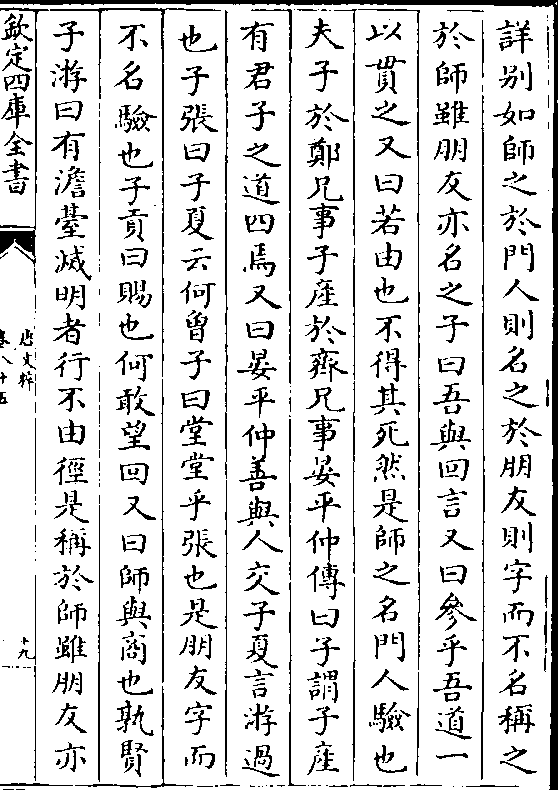 詳别如師之於門人則名之於朋友則字而不名稱之
於師雖朋友亦名之子曰吾與回言又曰參乎吾道一
以貫之又曰若由也不得其死然是師之名門人驗也
夫子於鄭兄事子產於齊兄事晏平仲傳曰子謂子產
有君子之道四焉又曰晏平仲善與人交子夏言游過
也子張曰子夏云何曾子曰堂堂乎張也是朋友字而
不名驗也子貢曰賜也何敢望回又曰師與商也孰賢
子游曰有澹臺滅明者行不由徑是稱於師雖朋友亦
欽定四庫全書
唐文粹
卷八十五
十九